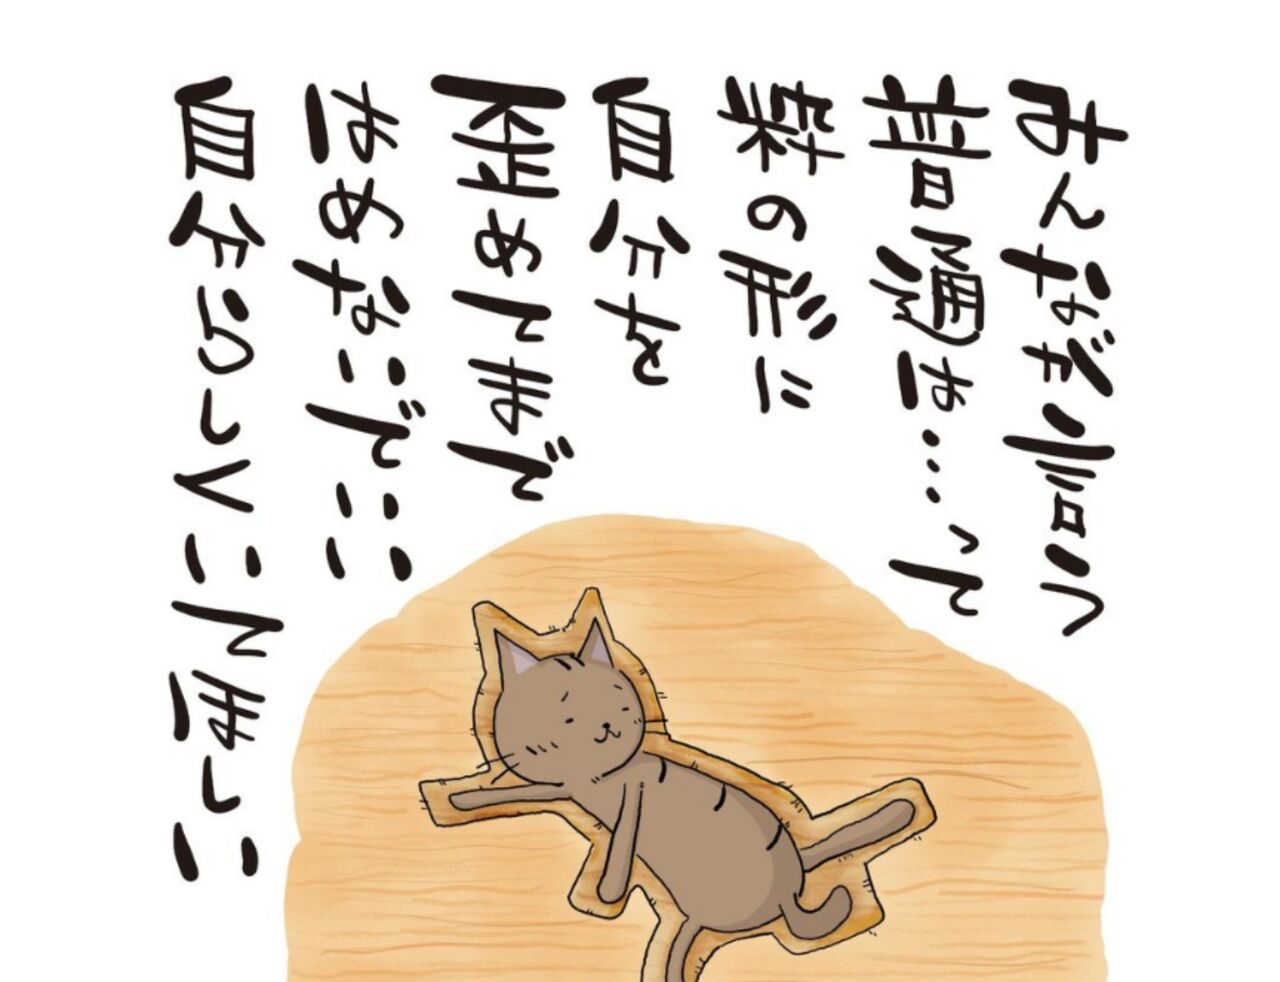 みんなが言う
普通は…って
粋の形に
自分を
歪めてまで
はめないでいい
自分らしくいてほしい